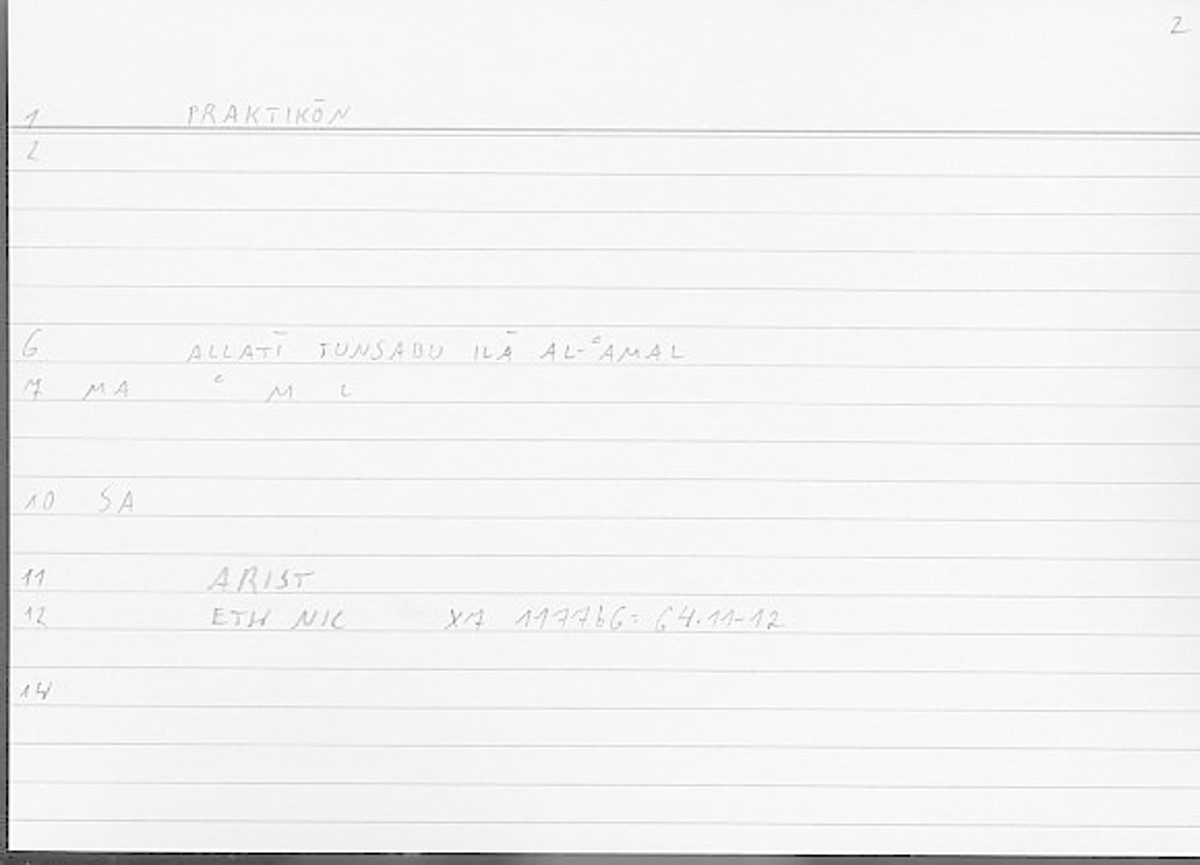 2
1 PRAKTIKŌN
2
6 ALLATĪ TUNSABU ILĀ AL-ᶜAMAL
7 MA ᶜ M L
10 SA
11 ARIST
12 ETH NIC X7 1177b6= 64.11-12
14